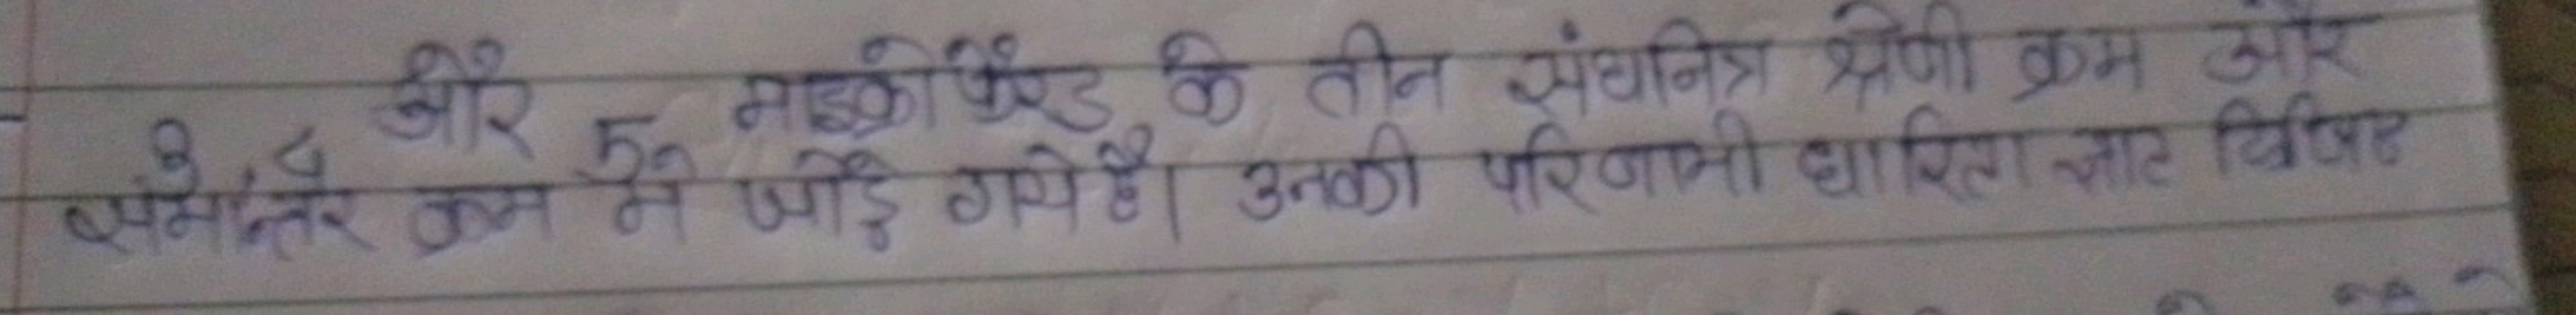 3, 4 और 5 माइक्रोफैरड के तीन संघनित्र श्रेणी क्रम और
समान्तर क्रम में जोड़े गये है। उनकी परिणामी धारिता ज्ञात किजिए